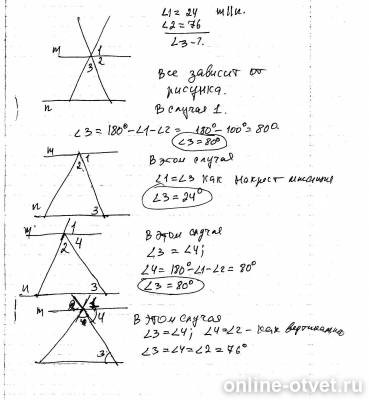 ∠1 = 24 m||n.
∠2 = 76
∠3 - ?
m 1
3 2
n
Все зависит от
рисунка.
В случая 1.
∠3 = 180° - ∠1 - ∠2 = 180° - 100° = 80°
∠3 = 80°
m 2 1
n 3
В этом случая
∠1 = ∠3 как накрест
∠3 = 24°
m
2 4
n 3
В этом случая
∠3 = ∠4;
∠4 = 180° - ∠1 - ∠2 = 80°
∠3 = 80°
m 4
3
В этом случая
∠3 = ∠4; ∠4 = ∠2 - как
∠3 = ∠4 = ∠2 = 76°
online-otvet.ru